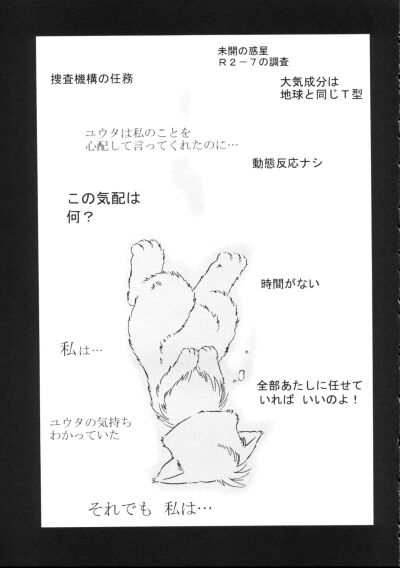 未開の惑星
R2-7の調査
捜査機構の任務
大気成分は
地球と同じT型
ユウタは私のことを
心配して言ってくれたのに…
動態反応ナシ
この気配は
何?
時間がない
私は…
全部あたしに任せて
いれば いいのよ!
ユウタの気持ち
わかっていた
それでも 私は…